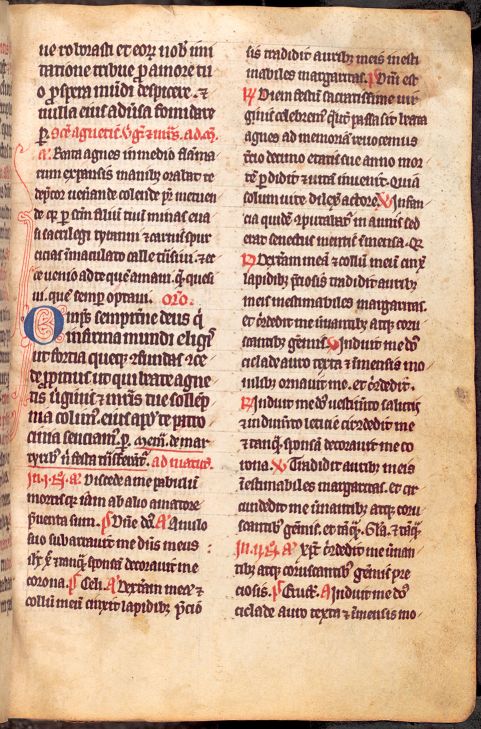 ue roborasti et eoꝝ nob̄ imi
tatione tribue ꝓ amore tu
o ꝓspera mūdi despicere ⁊
nulla eius adūsa formidare
p̲. Scē agnetis v̓gīs ⁊ m̄ris. ad
a᷎. Beata agnes in medio flāma⸝
rum expansis manib᷒ orabat te
dep̄cor uenerande colende p̄r metuen
de q̄ꝛ ꝑ sc̄m filiū tuū minas eua
si sacrilegi tyranni ⁊ carnis spur
cicias īmaculato calle trāsiui. ⁊ ec
ce uenio ad te quē amaui. q̄ quesi
ui. quē semꝑ optaui. oro.
Omp̄s sempiterne deus q̄
infirma mundi eligis
ut fortia queq̄ ꝯfundas ꝯce
de ꝓpitius ut qui beate agne
tis v̓ginis ⁊ m̄ris tue sollēp
nia colim᷒. eius apud te patro
cinia senciam᷒. ꝑ. de mar
tyrib᷒ ad matut᷒.
In .i. ꞃ̄. a᷎. Discede a me pabulū
mortis q̄ꝛ iam ab alio amatore
p̄uenta sum. p̄s Dn̄e dn̄s. A Anulo
suo subarrauit me dn̄s meus
ih̄c xp̄c ⁊ tanq̄ sponsā decorauit me
corona. p̄s Celi. A Dextram meā ⁊
collū meū cinxit lapidib᷒ p̄cio
sis tradidit aurib᷒ meis inesti
mabiles margaritas. p̄s Dn̄i est
ꝶ Diem festū sacratissime uir
ginis celebrem᷒ qualit̓ passa sit beata
agnes ad memoriā reuocemus
t̓cio decimo etatis sue anno mor
tē ꝑdidit ⁊ uitā inuenit. Quia
solum uite dilex̄ actorē. ꝟ Infan
cia quidē ꝯputabat᷒ in annis sed
erat senectus mentis īmensa. Q̄
ꝶ Dextram meā ⁊ collū meū cinx̄
lapidib᷒ p̄ciosis tradidit aurib᷒
meis inestimabiles margaritas.
et circūdedit me uernantib᷒ atq̄ coru
scantib᷒ gēmis. ꝟ Induit me dn̄s
ciclade auro texta ⁊ īmensis mo
nilib᷒ ornauit me. et circūdedit.
ꝶ Induit me dn̄s uestimēto salutis
⁊ indumēto leticie circūdedit me
⁊ tanq̄ sponsā decorauit me co
rona. ꝟ Tradidit aurib᷒ meis
inestimabiles margaritas. et cir
cundedit me uernantib᷒ atq̄ coru
scantib᷒ gēmis. et tāq̄. Gla. ⁊ tāq̄.
In .ii. ꞃ̄. a᷎ xp̄c circūdedit me uernan
tib᷒ atq̄ coruscantib᷒ gēmis pre
ciosis. p̄s Eruct̄. A Induit me dn̄s
ciclade auro texta ⁊ īmensis mo⸝